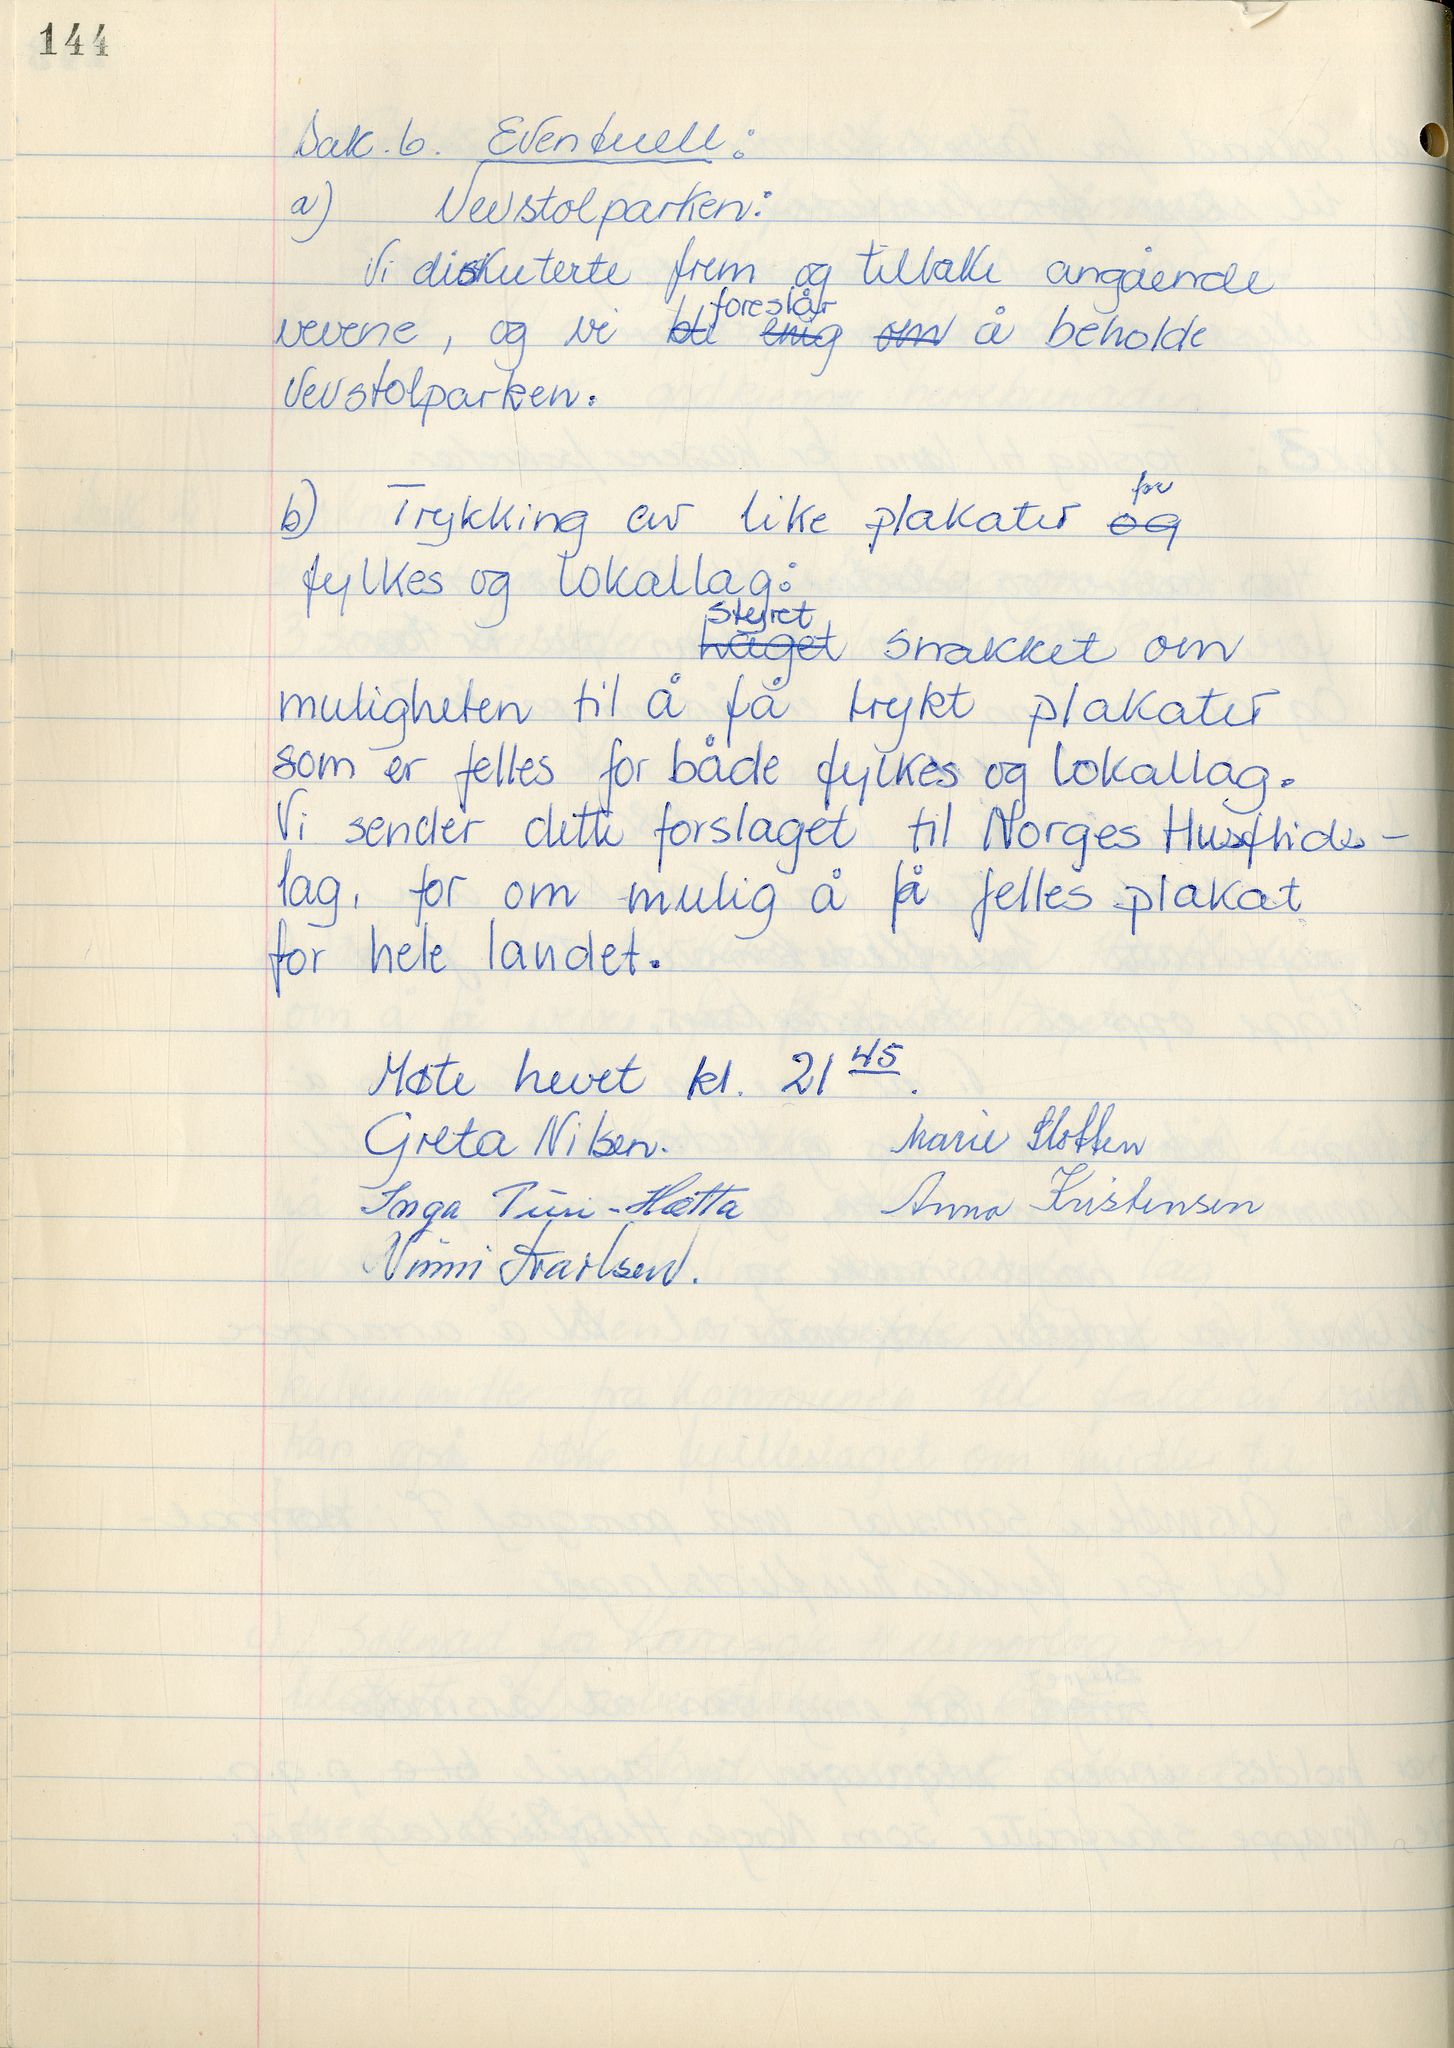 144
Sak. 6. Eventuell:
a) Vevstolparken:
Vi diskuterte frem og tilbake angående
foreslår
vevene, og vi bli enig om å beholde
Vevstolparken.
for
b) Trykking av like plakater og
fylkes og lokallag:
Styret
laget snakket om
muligheten til å få trykt plakater
som er felles for både fylkes og lokallag.
Vi sender dette forslaget til Norges Husflids-
lag, for om mulig å få felles plakat
for hele landet.
Møte hevet kl. 21 45.
Greta Nilsen. Marie Slotten
Inga Turi-Hætta Anna Kristensen
Vinni Karlsen.